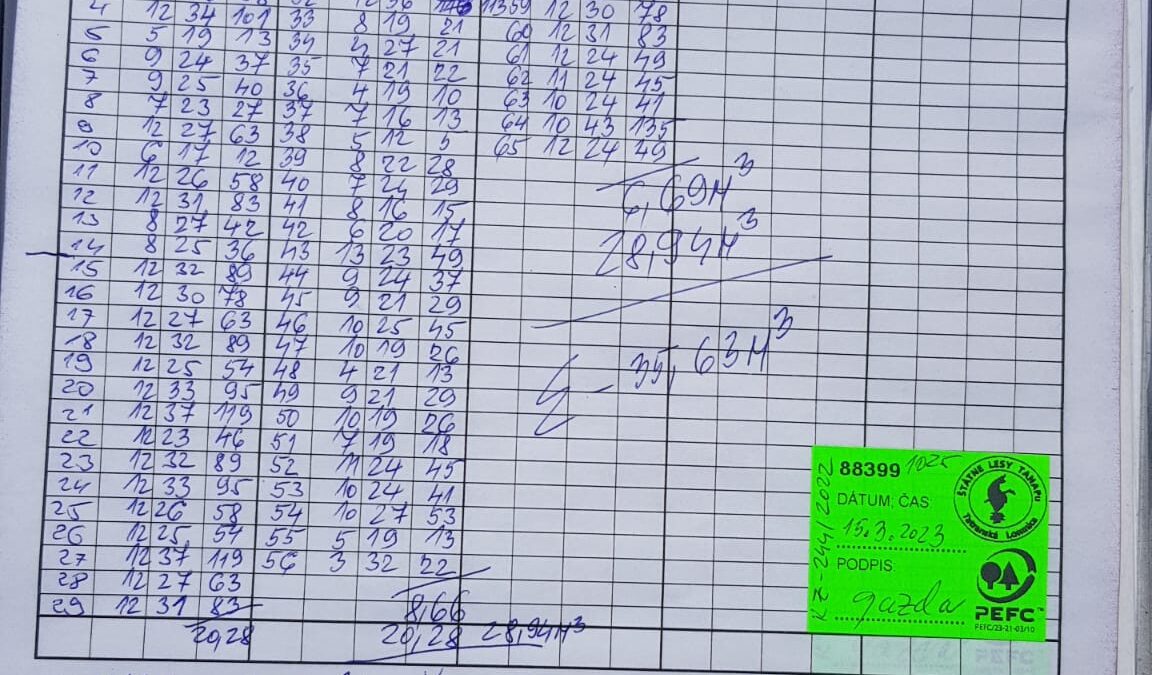 4 12 34 101 33 8 19 21 11359 12 30 78
5 5 19 13 34 4 27 21 60 12 31 83
6 9 24 37 35 7 21 22 61 12 24 49
7 9 25 40 36 4 19 10 62 11 24 45
8 7 23 27 37 7 16 13 63 10 24 41
9 12 27 63 38 5 12 5 64 10 43 135
10 6 17 12 39 8 22 28 65 12 24 49
11 12 26 58 40 7 24 29
12 12 31 83 41 8 16 15
6,69M³
13 8 27 42 42 6 20 17
14 8 25 36 43 13 23 49
28,94M³
15 12 32 89 44 9 24 37
16 12 30 78 45 9 21 29
17 12 27 63 46 10 25 45
18 12 32 89 47 10 19 26
35,63M³
19 12 25 54 48 4 21 13
20 12 33 95 49 9 21 29
21 12 37 119 50 10 19 26
22 12 23 46 51 7 19 18
23 12 32 89 52 11 24 45
24 12 33 95 53 10 24 41
25 12 26 58 54 10 27 53
26 12 25 54 55 5 19 13
27 12 37 119 56 3 32 22
28 12 27 63
29 12 31 83 8,66
20,28 20,28 28,94M³
88399 1025
ŠTÁTNE LESY TANAPU
Tatranská Lomnica
DÁTUM, ČAS
15.3.2023
PODPIS
gazda
KZ-244/2022
PEFC™
PEFC/23-21-03/10
PEFC